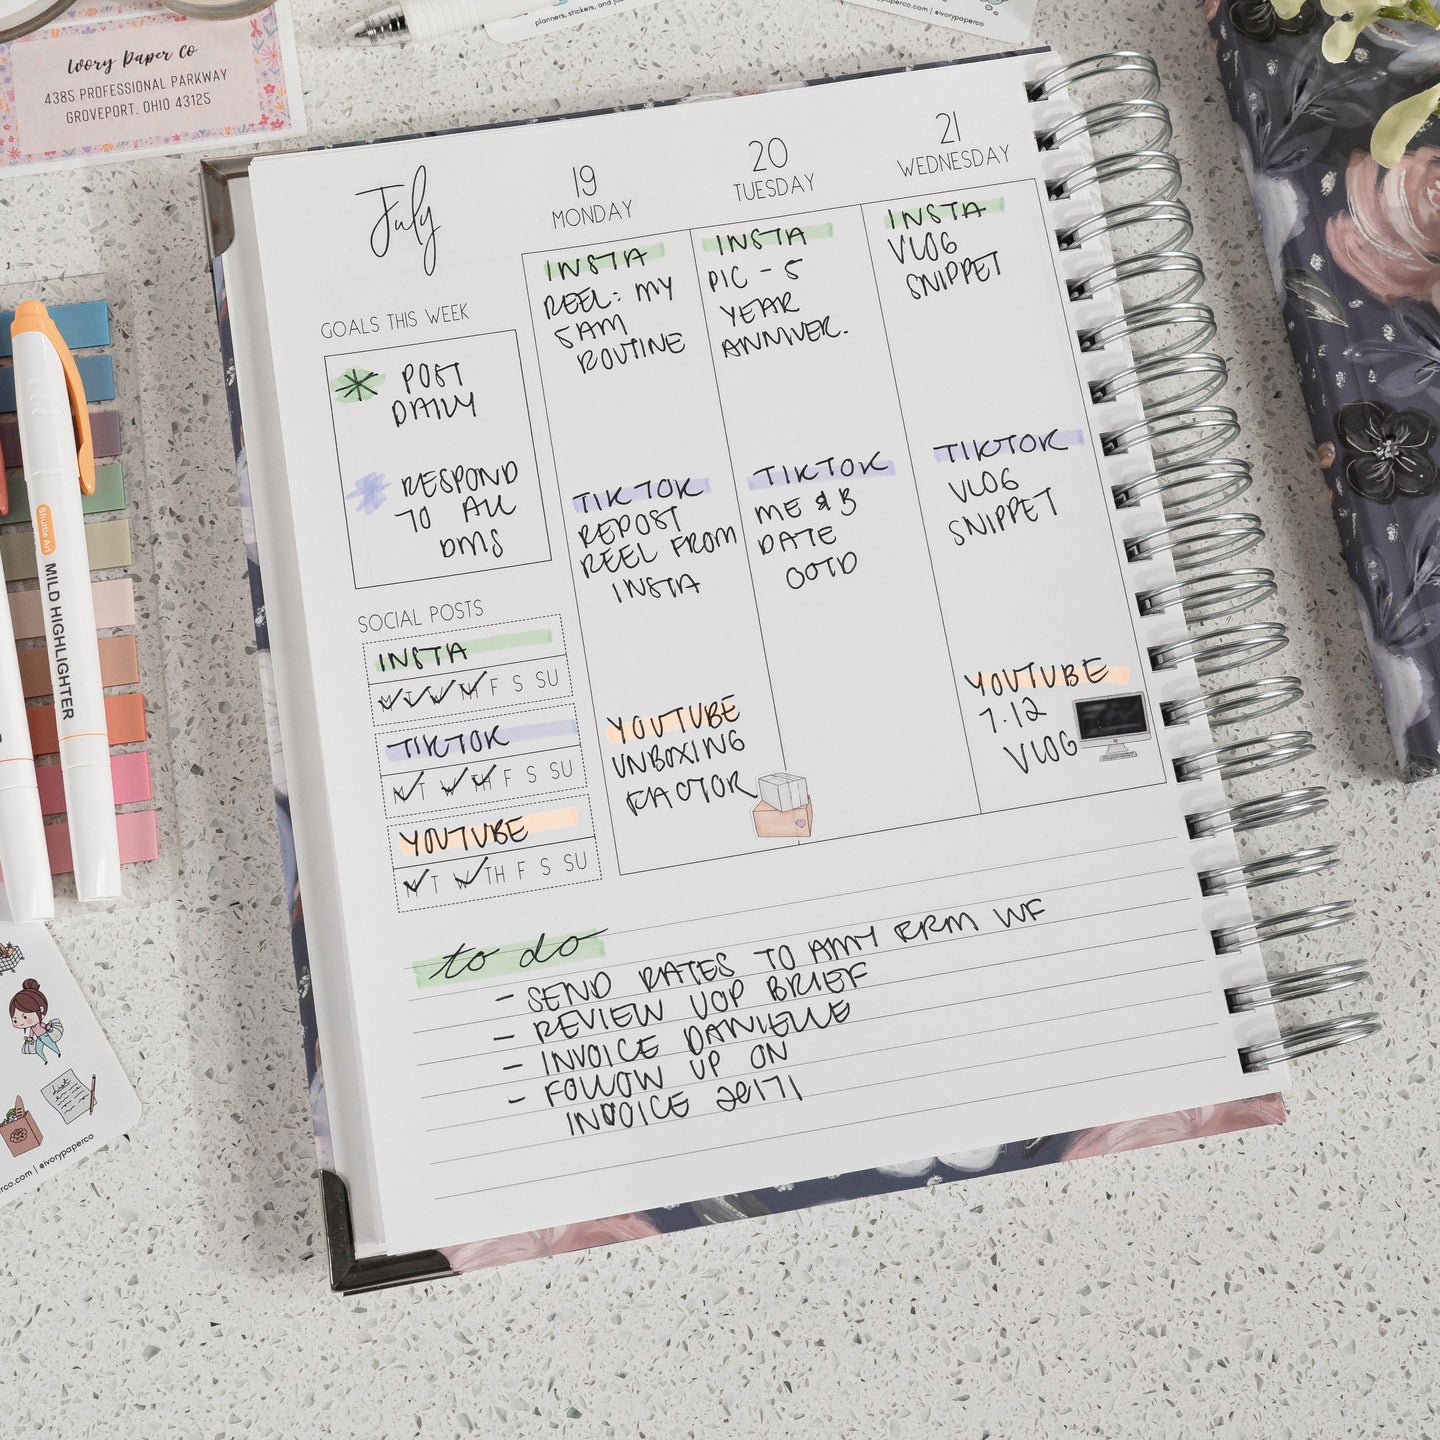 planners, stickers, and
.com | @ivorypaperco
Ivory Paper Co
4385 PROFESSIONAL PARKWAY
GROVEPORT, OHIO 43125
July
19
MONDAY
20
TUESDAY
21
WEDNESDAY
GOALS THIS WEEK
POST
DAILY
RESPOND
TO ALL
DMS
SOCIAL POSTS
INSTA
M T W TH F S SU
TIKTOK
M T W TH F S SU
YOUTUBE
M T W TH F S SU
INSTA
REEL: MY
5AM
ROUTINE
TIKTOK
REPOST
REEL FROM
INSTA
YOUTUBE
UNBOXING
FACTOR
INSTA
PIC - 5
YEAR
ANNIVER.
TIKTOK
ME & B
DATE
OOTD
INSTA
VLOG
SNIPPET
TIKTOK
VLOG
SNIPPET
YOUTUBE
7.12
VLOG
to do
- SEND RATES TO AMY RRM WF
- REVIEW UOP BRIEF
- INVOICE DANIELLE
- FOLLOW UP ON
INVOICE 20171
Shuttle Art
MILD HIGHLIGHTER
.com | @ivorypaperco